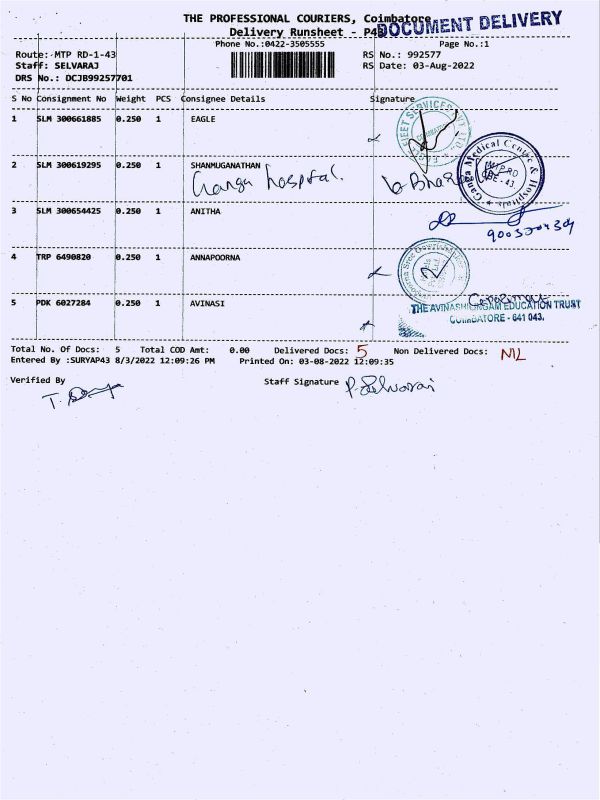 THE PROFESSIONAL COURIERS, Coimbatore
DOCUMENT DELIVERY
Delivery Runsheet - P43
Phone No.:0422-3505555 Page No.:1
Route: MTP RD-1-43 RS No.: 992577
Staff: SELVARAJ RS Date: 03-Aug-2022
DRS No.: DCJB99257701
S No Consignment No Weight PCS Consignee Details Signature
1 SLM 300661885 0.250 1 EAGLE
2 SLM 300619295 0.250 1 SHANMUGANATHAN
Ganga hospital.
Ganga Medical Centre & Hospitals
MTP.RD
CBE-43.
3 SLM 300654425 0.250 1 ANITHA
4 TRP 6490820 0.250 1 ANNAPOORNA
5 PDK 6027284 0.250 1 AVINASI
THE AVINASHILINGAM EDUCATION TRUST
COIMBATORE - 641 043.
Total No. Of Docs: 5 Total COD Amt: 0.00 Delivered Docs: 5 Non Delivered Docs: NIL
Entered By :SURYAP43 8/3/2022 12:09:26 PM Printed On: 03-08-2022 12:09:35
Verified By Staff Signature P. Selvaraj